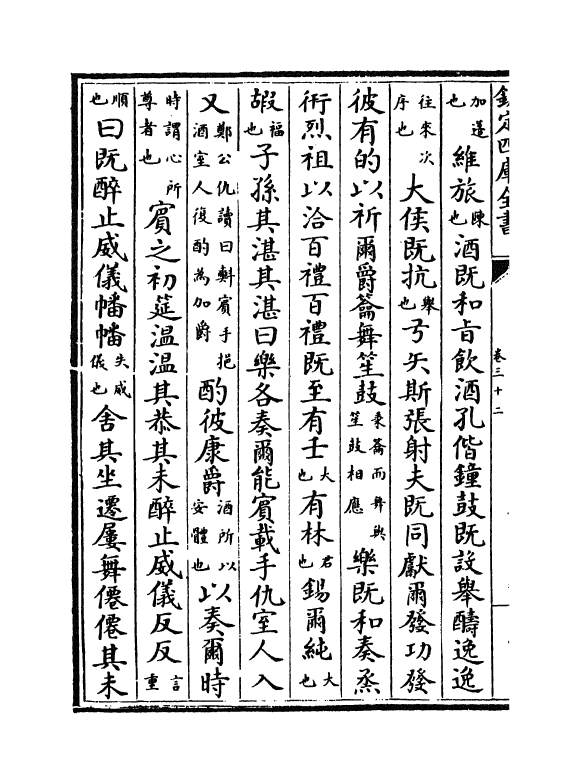 欽定四庫全書
卷三十二
加籩也維旅陳也酒既和旨飲酒孔偕鐘鼓既設舉醻逸逸
往來次序也大侯既抗舉也弓矢斯張射夫既同獻爾發功發
彼有的以祈爾爵籥舞笙鼓秉籥而舞與笙鼓相應樂既和奏烝
衎烈祖以洽百禮百禮既至有壬大也有林君也錫爾純大也
嘏福也子孫其湛其湛曰樂各奏爾能賓載手仇室人入
又鄭公仇讀曰賓手挹酒室人復酌為加爵酌彼康爵酒所以安體也以奏爾時
時謂心所尊者也賓之初筵温温其恭其未醉止威儀反反言重
順也曰既醉止威儀幡幡失威儀也舍其坐遷屢舞僊僊其未